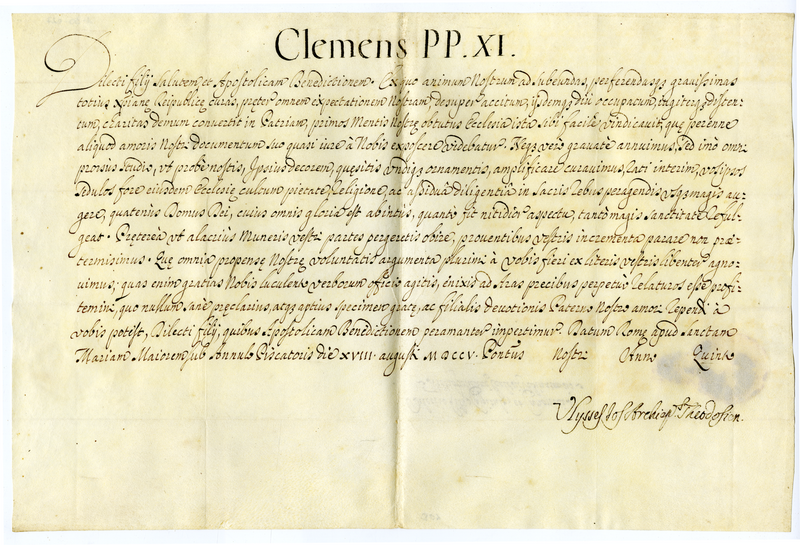 Clemens PP. XI.
Dilecti filij salutem et Apostolicam Benedictionem. Ex quo animum Nostrum ad subeundas, perferendasq3 gravissimas
totius Xpiane Reipublice curas, preter omnem expectationem Nostram, desuper accitum, ijsdemq3 diu occupatum, iugiterq3 disten-
tum, charitas demum convertit in Patriam, primos Mentis Nostre obtutus Ecclesia ista sibi facile vindicavit, que perenne
aliquod amoris Nostri documentum suo quasi iure à Nobis exposcere videbatur. Neq3 vero gravate annuimus, sed imò omni
prorsus studio, vt probè nostis, Ipsius decorem, quesitis vndiq3 ornamentis, amplificare curavimus, rati interim, vos ipsos
sedulos fore eiusdem Ecclesie cultum pietate, Religione, ac assidua diligentia in sacris rebus peragendis vsq3 magis au-
gere, quatenus Domus Dei, cuius omnis gloria est abintus, quanto fit nitidior aspectu, tantò magis sanctitate reful-
geat. Preterea vt alacrius Muneris vestri partes pergeretis obire, proventibus vestris incrementa parare non præ-
termisimus. Que omnia propense Nostre voluntatis argumenta plurimi à vobis fieri ex literis vestris libenter agno-
vimus; quas enim gratias Nobis luculento verborum officio agitis, enixis ad Aras precibus perpetuò relaturos esse profi-
temini, quo nullum sanè preclarius, atq3 aptius specimen grate, ac filialis devotionis Paterno Nostro amori rependi à
vobis potest, Dilecti filij, quibus Apostolicam Benedictionem peramanter impertimur. Datum Rome apud Sanctam
Mariam Maiorem sub Annulo Piscatoris die XVIII. augusti MDCCV. Pontus Nostri Anno Quinto
Vlysses Jos Archiepus Theodosien.